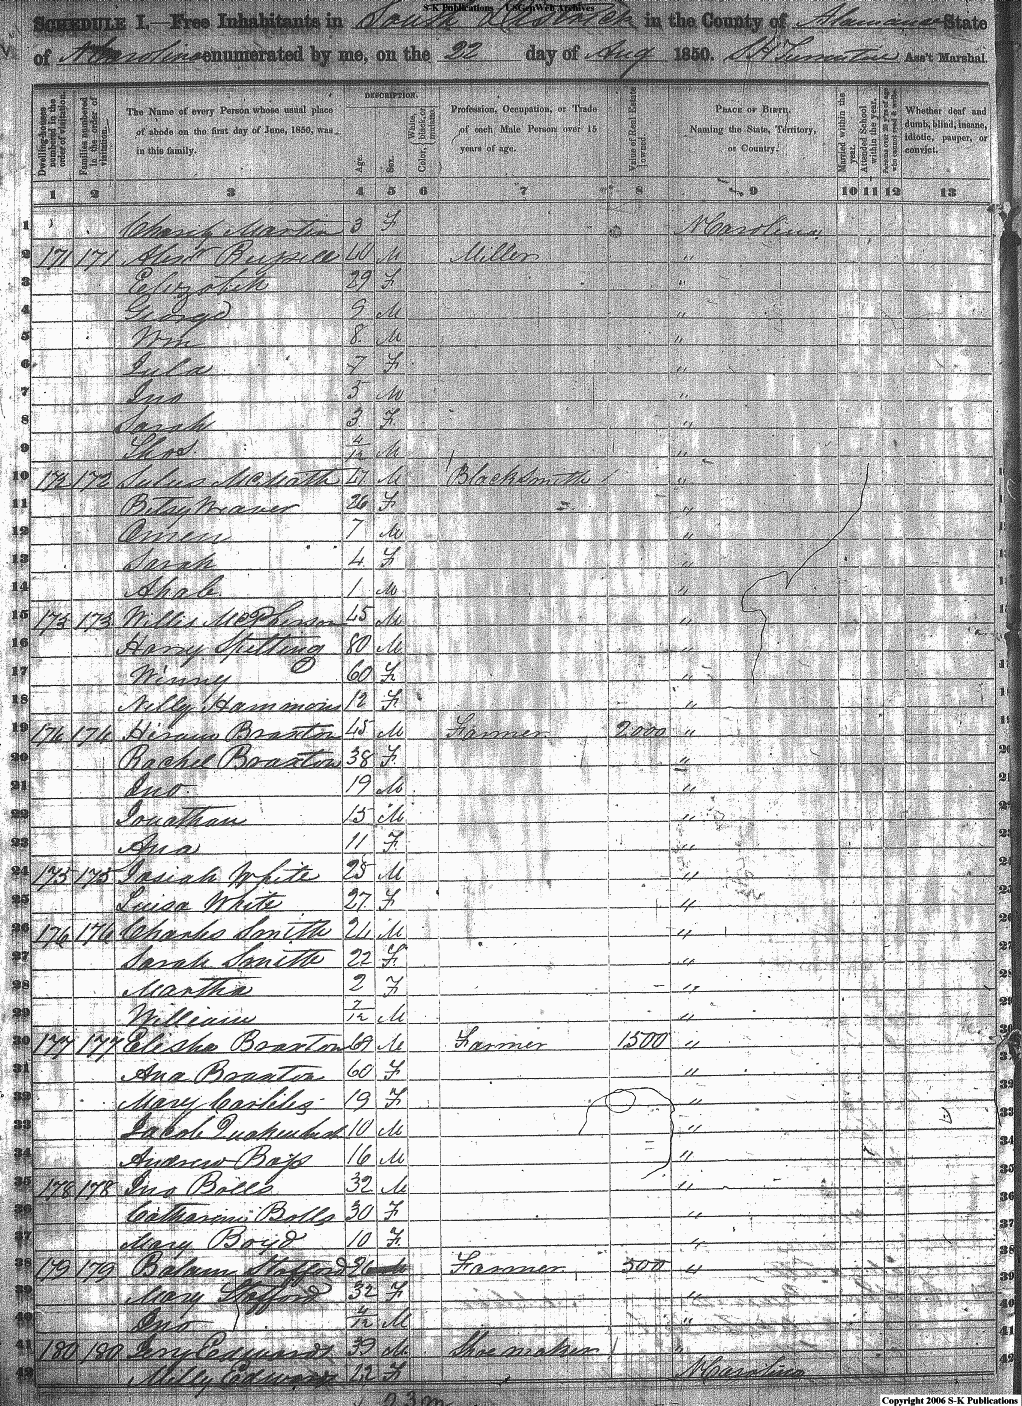 S-K Publications USGenWeb Archives
SCHEDULE I.—Free Inhabitants in South in the County of Alamance State
of N Carolina enumerated by me, on the 22 day of Aug 1850. Ass't Marshal.
Dwelling-houses numbered in the order of visitation.
Families numbered in the order of visitation.
The Name of every Person whose usual place of abode on the first day of June, 1850, was in this family.
DESCRIPTION.
Age.
Sex.
Color, White, black, or mulatto.
Profession, Occupation, or Trade of each Male Person over 15 years of age.
Value of Real Estate owned
PLACE OF BIRTH, Naming the State, Territory, or Country.
Married within the year.
Attended School within the year.
Persons over 20 y'rs of age who cannot read & write.
Whether deaf and dumb, blind, insane, idiotic, pauper, or convict.
1 2 3 4 5 6 7 8 9 10 11 12 13
1 Martin 3 F N Carolina
2 171 171 40 M Miller "
3 Elizabeth 29 F "
4 George 9 M "
5 Wm 8 M "
6 Jula 7 F "
7 Jno 5 M "
8 Sarah 3 F "
9 Thos 4/12 M "
10 172 172 M Blacksmith "
11 Betsy Weaver 26 F "
12 7 M "
13 Sarah 4 F "
14 1 M "
15 173 173 Willis McPherson 45 M "
16 Harry 80 M "
17 Winney 60 F "
18 Nelly Hammons 12 F "
19 174 174 Hiram Braxton 45 M Farmer 2000 "
20 Rachel Braxton 38 F "
21 Jno 19 M "
22 Jonathan 15 M "
23 Ana 11 F "
24 175 175 Josiah White 25 M "
25 Luisa White 27 F "
26 176 176 Charles Smith 24 M "
27 Sarah Smith 22 F "
28 Martha 2 F "
29 William 7/12 M "
30 177 177 Elisha Braxton 69 M Farmer 1500 "
31 Ana Braxton 60 F "
32 Mary 19 F "
33 Jacob 10 M "
34 Andrew 16 M "
35 178 178 Jno Bolls 32 M "
36 Catharine Bolls 30 F "
37 Mary Boyd 10 F "
38 179 179 Stafford 26 M Farmer 300 "
39 Mary Stafford 32 F "
40 Jno 4/12 M "
41 180 180 Edwards 39 M Shoemaker "
42 Milly Edwards 12 F N Carolina
Copyright 2006 S-K Publications